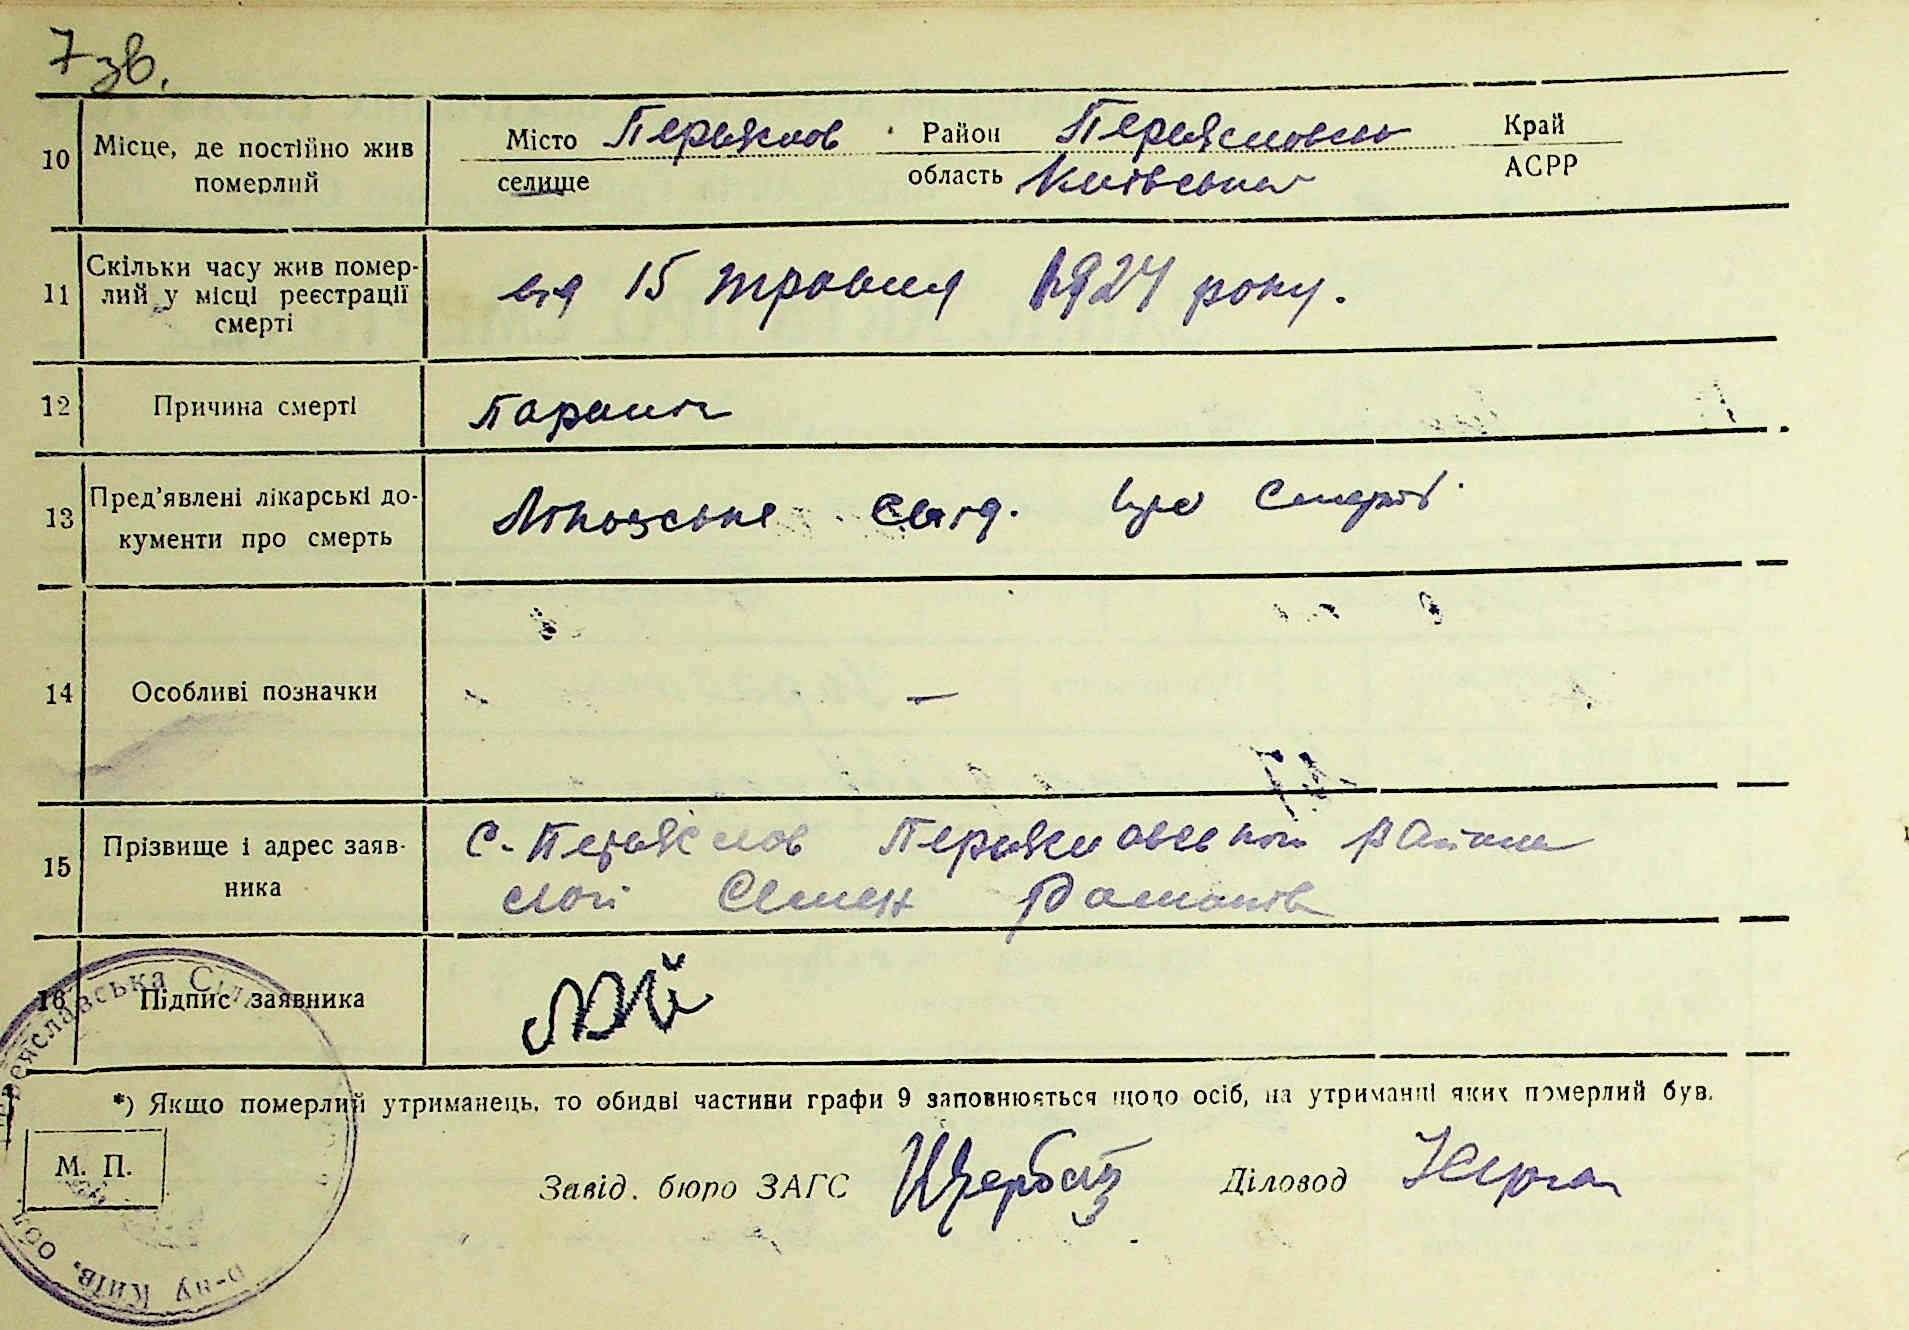 7 зв.
10 Місце, де постійно жив померлий
Місто Переяслов Район Переясловськ Край
селище область Київська АСРР
11 Скільки часу жив помер-
лий у місці реєстрації
смерті
від 15 травня 1924 року.
12 Причина смерті
13 Пред’явлені лікарські до-
кументи про смерть
Лікарське свід. про смерть
14 Особливі позначки —
15 Прізвище і адрес заяв-
ника
с. Переяслов Переясловський району
Семен Романов
16 Підпис заявника
*) Якщо померлий утриманець, то обидві частини графи 9 заповнюється щодо осіб, на утриманні яких померлий був.
М. П.
Завід. бюро ЗАГС Діловод
Переяславська Сіл
р-ну Київ. обл.